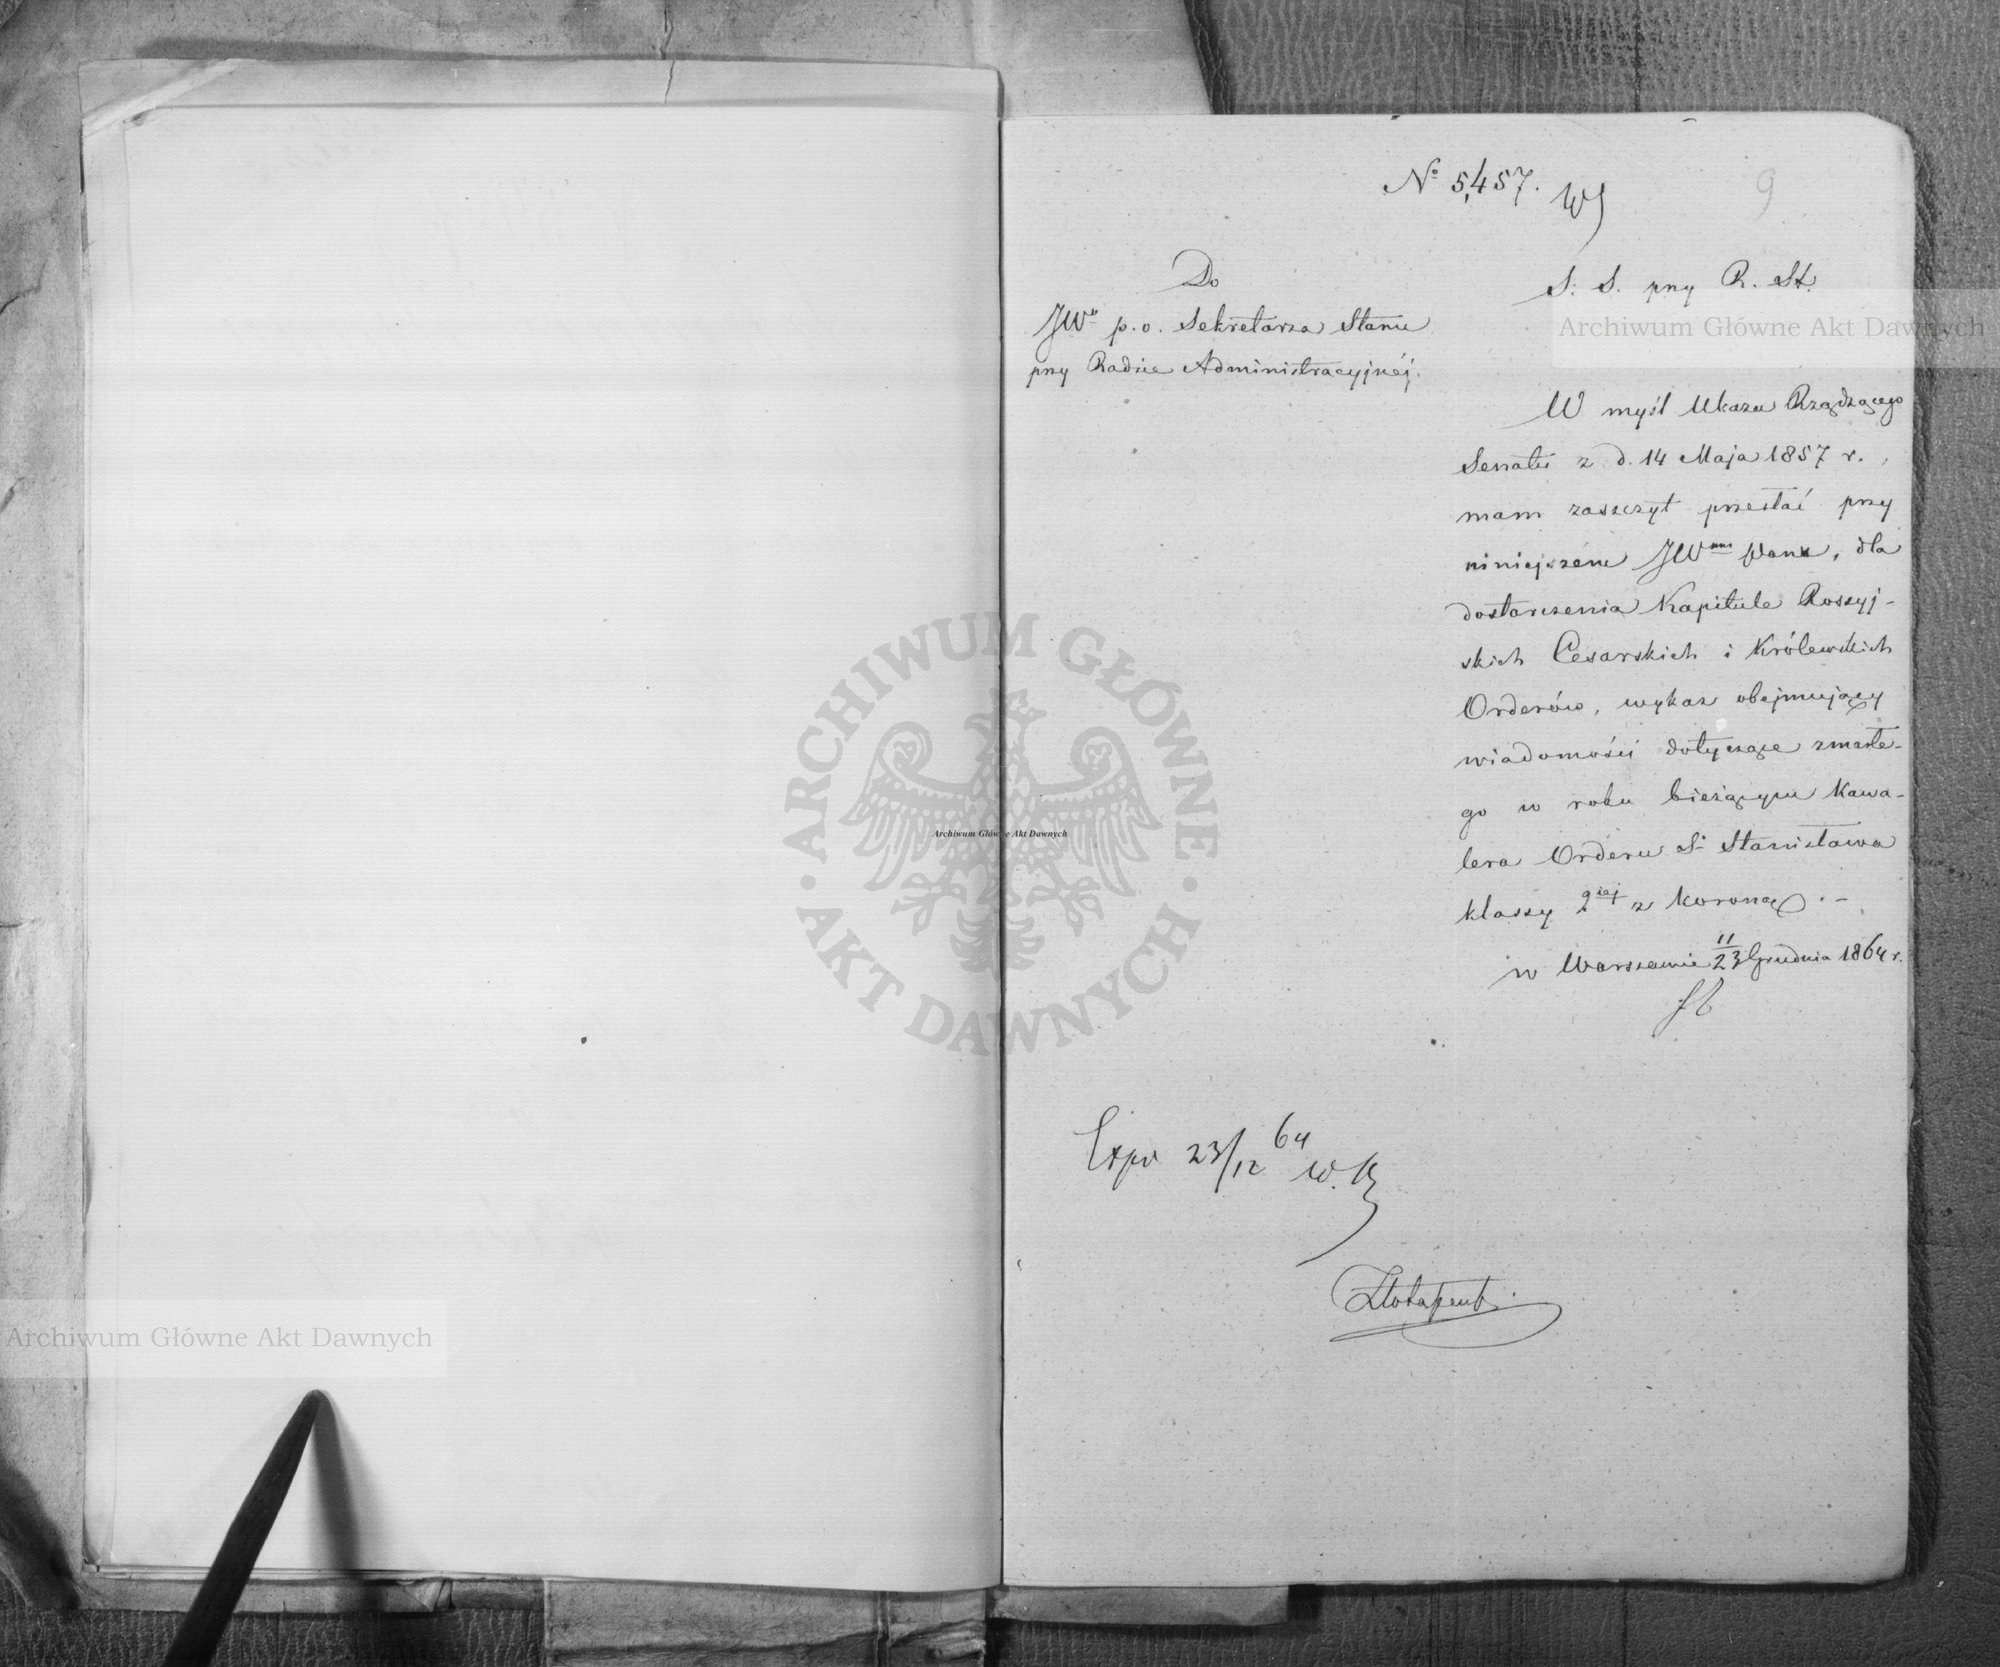 No 5,457.
9
Do
JWo p. o. Sekretarza Stanu
przy Radzie Administracyjnéj.
S. S. przy R. St.
W myśl Ukazu Rządzącego
Senatu z d. 14 Maja 1857 r.,
mam zaszczyt przesłać przy
niniejszem JWmu Panu, dla
dostarczenia Kapitule Rossyj-
skich Cesarskich i Królewskich
Orderów, wykaz obejmujący
wiadomości dotyczące zmarłe-
go w roku bieżącym Kawa-
lera Orderu Sgo Stanisława
klassy 2giej z koroną.-
w Warszawie 11/23 Grudnia 1864 r.
Expv 23/12 64 W. K
Archiwum Główne Akt Dawnych
Archiwum Główne Akt Dawnych
Archiwum Główne Akt Dawnych
ARCHIWUM GŁÓWNE · AKT DAWNYCH ·